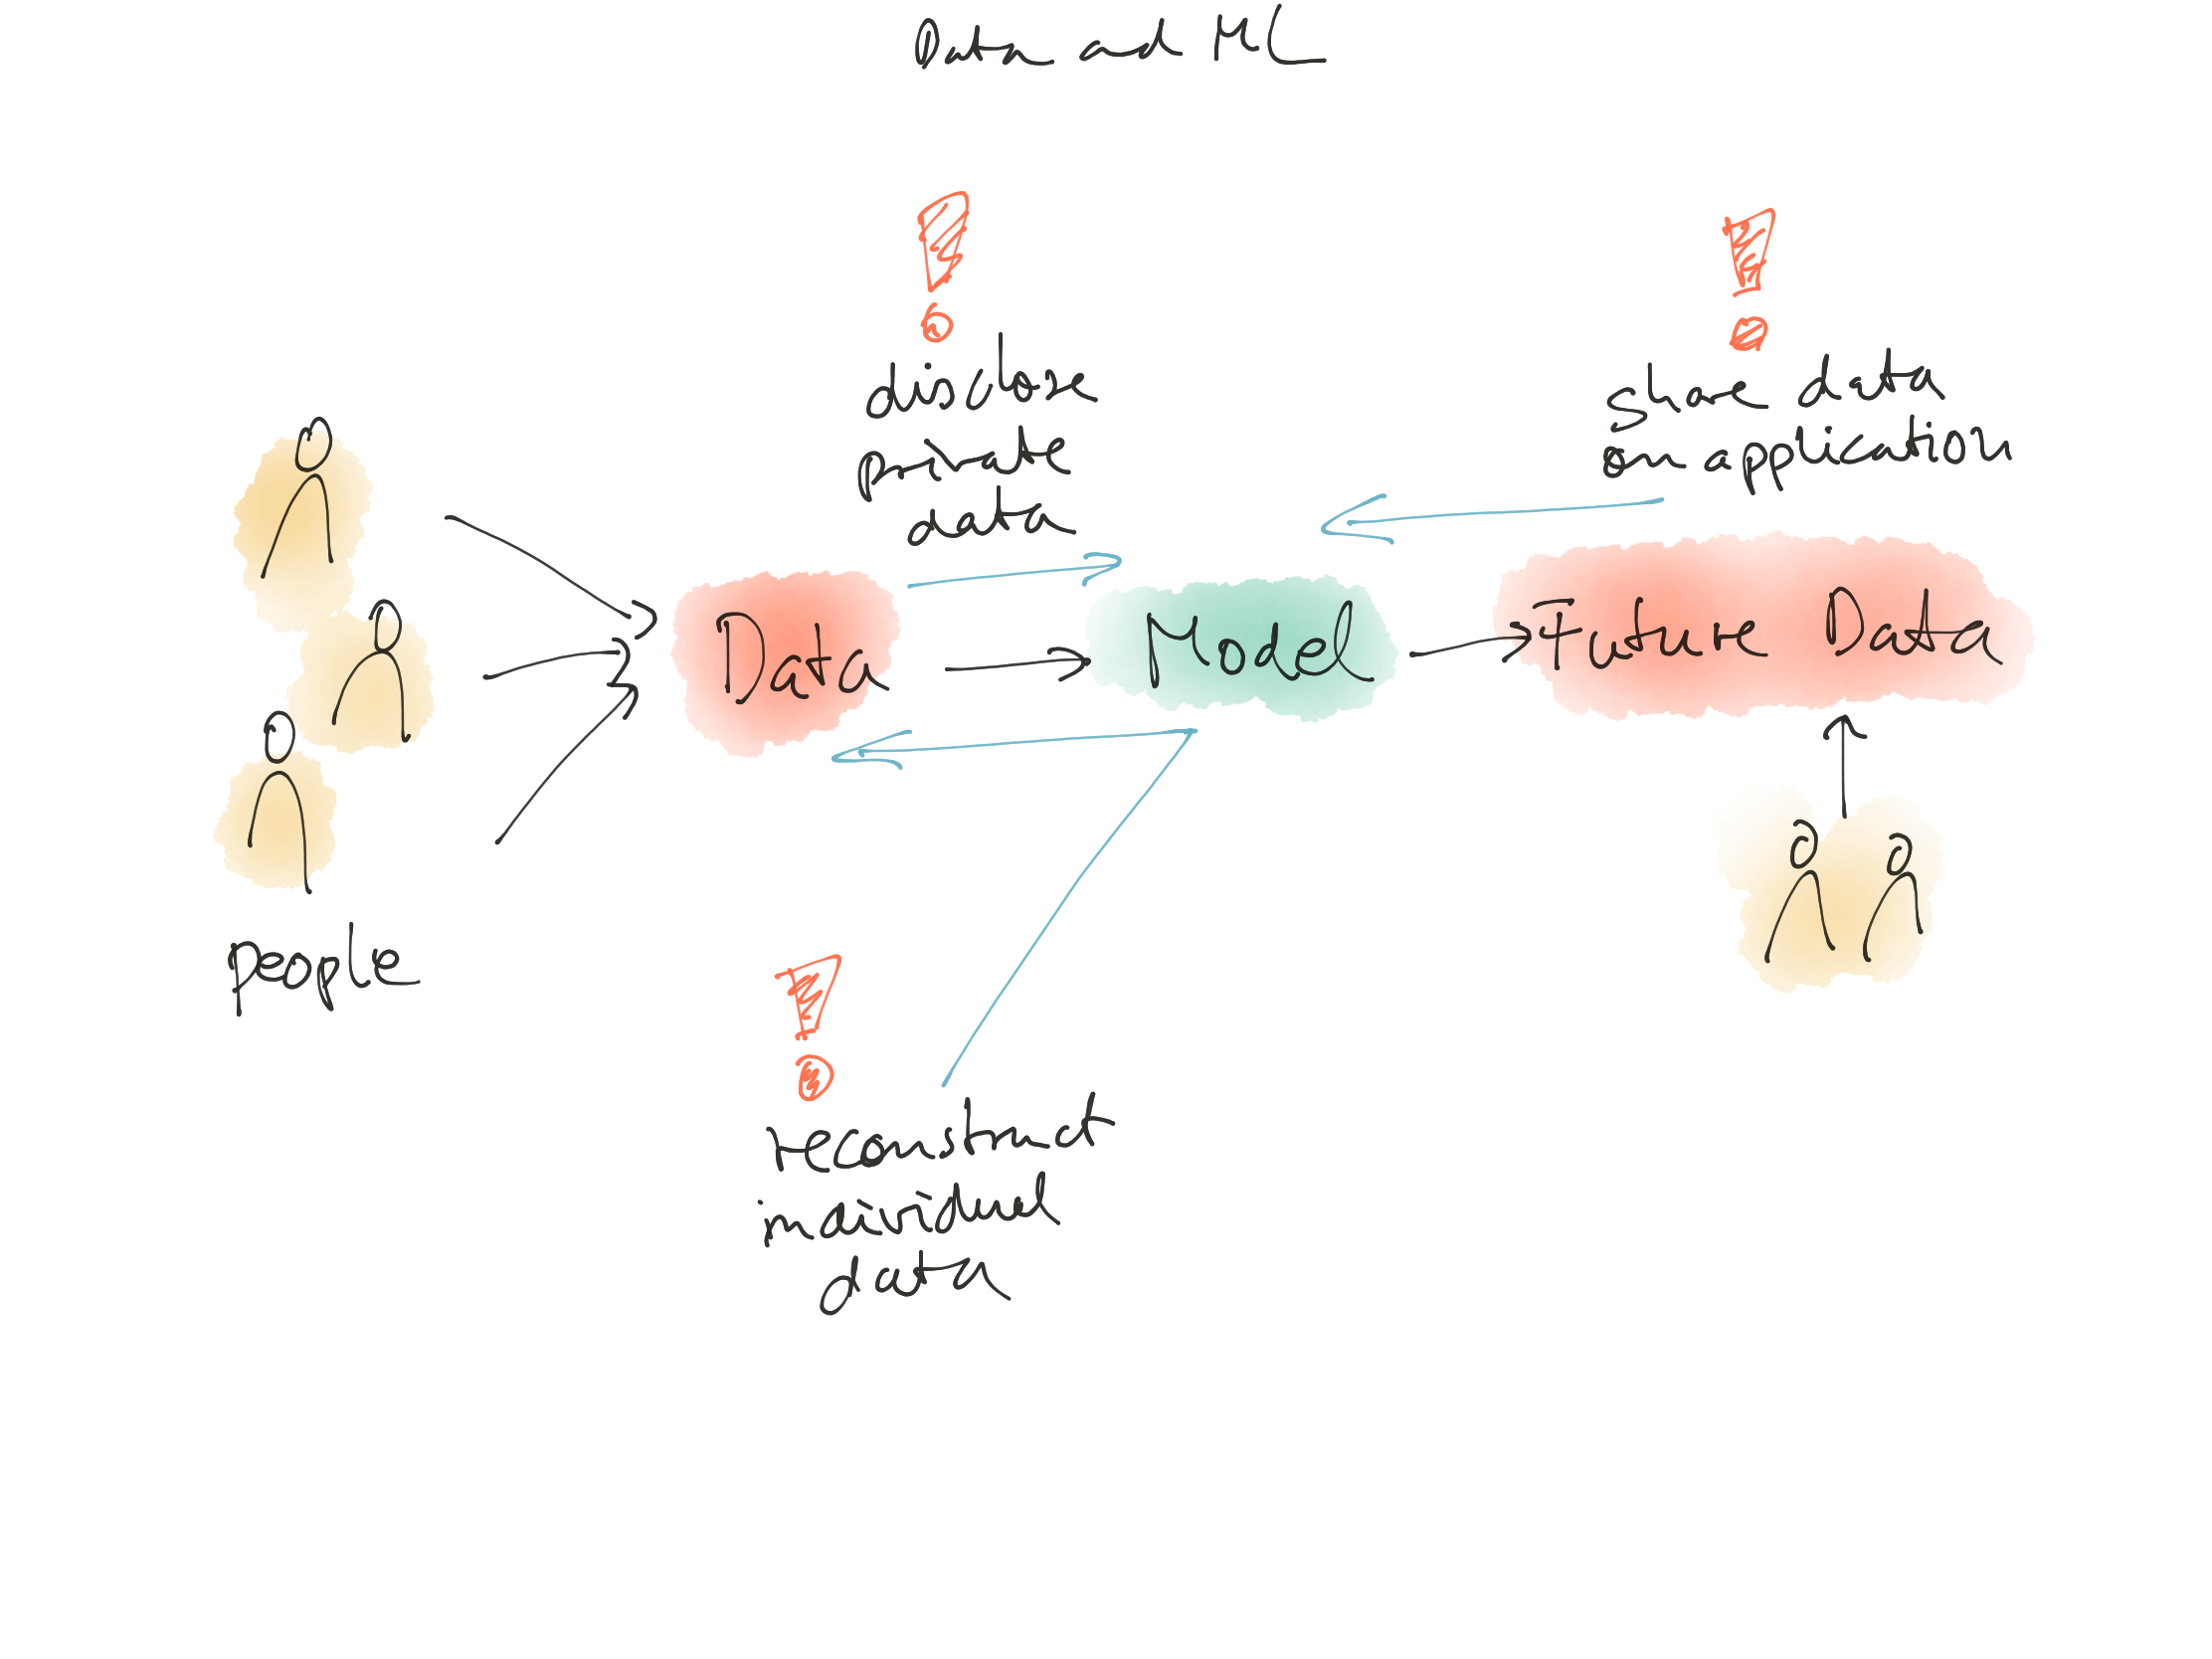 Data and ML
disclose
private
data
share data
on application
Data
Model
Future Data
people
reconstruct
individual
data